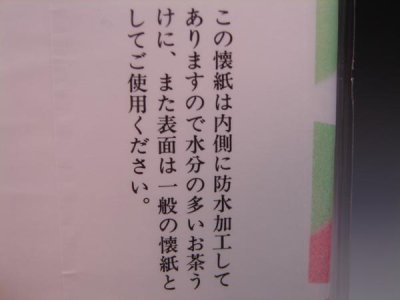 この懐紙は内側に防水加工して
ありますので水分の多いお茶う
けに、また表面は一般の懐紙と
してご使用ください。